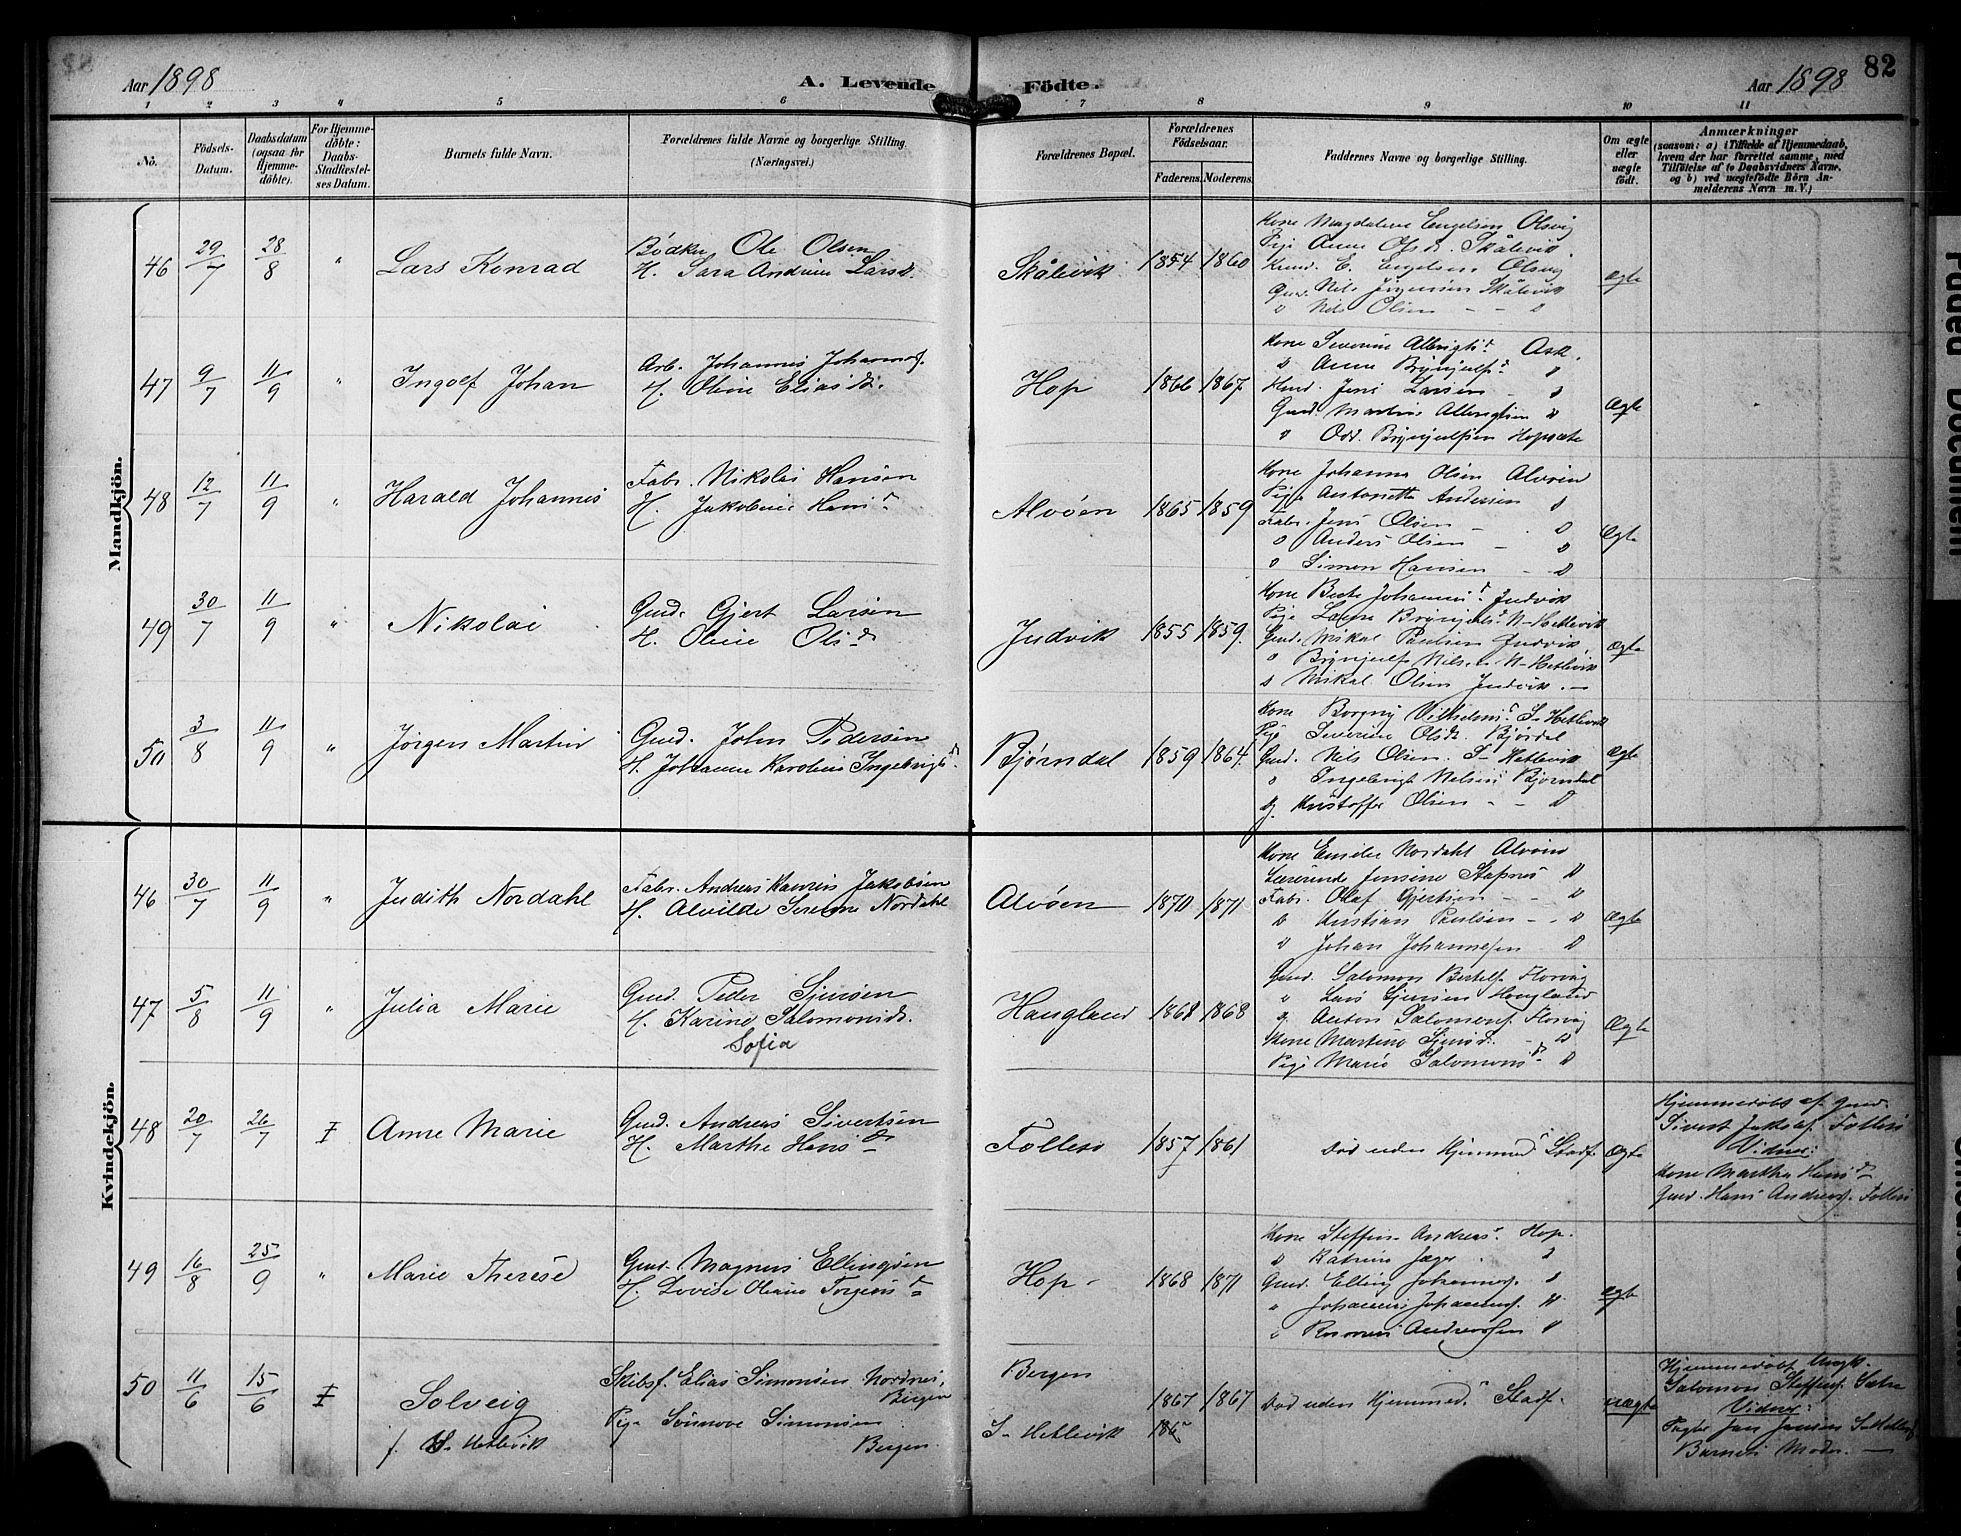 82
Aar 1898
A. Levende Födte.
Aar 1898
1 2 3 4 5 6 7 8 9 10 11
No.
Födsels-
Datum.
Daabsdatum
(ogsaa for
Hjemme-
döbte).
For Hjemme-
döbte:
Daabs-
Stadfæstel-
ses Datum.
Barnets fulde Navn.
Forældrenes fulde Navne og borgerlige Stilling.
(Næringsvei.)
Forældrenes Bopæl.
Forældrenes
Födselsaar.
Faderens. Moderens.
Faddernes Navne og borgerlige Stilling.
Om ægte
eller
uægte
födt.
Anmærkninger
(saasom: a) i Tilfælde af Hjemmedaab,
hvem der har forrettet samme, med
Tilföielse af to Daabsvidners Navne,
og b) ved uægtefödte Börn An-
melderens Navn m. V.)
Mandkjön.
46 29/7 28/8 " Lars Konrad
Bødker Ole Olsen
H. Sara Andrine Larsd.
Skålevik 1854 1860
Kone Magdalene Engelsen Olsvig
Pige Anne Olsd. Skålevik
Kund. E. Engelsen Olsvig
Gmd. Nils Jørgensen Skålevik
" Nils Olsen - - "
ægte
47 9/7 11/9 " Ingolf Johan
Arb. Johannes Johannesf.
H. Oline Eliasd.
Hop 1866 1867
Kone Severine Albrigtsd. Ask.
" Anne Brynjulfsd. "
Kund. Jens Larsen - "
Gmd. Martin Albrigtsen "
" Odd. Brynjulfsen Hopsæte
Ægte
48 12/7 11/9 " Harald Johannes
Fabr. Nikolai Hansen
H. Jakobine Hansd.
Alvøen 1865 1859
Kone Johanna Olsen Alvøen
Pige Antonette Andersen "
Fabr. Jens Olsen - "
" Anders Olsen - "
" Simon Hansen - "
Ægte
49 30/7 11/9 " Nikolai
Gmd. Gjert Larsen
H. Oline Olsd.
Judvik 1855 1859.
Kone Berte Johannesd. Judvik
Pige Laura Brynjulfsd. N-Hetlevik
Gmd. Mikal Paulsen Judvik
" Brynjulf Nilsen N-Hetlevik
" Mikal Olsen Judvik -
Ægte
50 3/8 11/9 " Jørgen Martin
Gmd. John Pedersen
H. Johanne Karoline Ingebrigtsd.
Bjørndal 1859 1864.
Kone Borgny Vilhelmsd. S-Hetlevik
Pige Severine Olsdr. Bjørdal
Gmd. Nils Olsen S-Hetlevik
" Ingebrigt Nilsen Bjørndal
Kristoffer Olsen - - "
Ægte
Kvindekjön.
46 30/7 11/9 " Judith Nordahl
Fabr. Andreas Jakobsen
H. Alvilde Serine Nordahl
Alvøen 1870 1871
Kone Emilie Nordahl Alvøen
Lærerinde Jensine Stapnes "
Fabr. Olaf Gjertsen - - "
" Kristian Paulsen - - "
" Johan Johannesen "
Ægte
47 5/8 11/9 " Julia Marie
Gmd. Peder Sjursen
H. Karine Salomonsd.
Sofia
Haugland 1868 1868
Gmd. Salomon Bertelf. Florvåg
" Lars Sjursen Haugland
Anton Salomonsf. Florvåg
Kone Martine Sjursd. - "
Pige Marie Salomonsd. "
Ægte
48 20/7 26/7 I Anne Marie
Gmd. Andreas Sivertsen
H. Marthe Hansd.
Follesø 1857 1861
Død uden Hjemmed. Stadf.
Ægte
Hjemmedøbt af Gmd.
Sivert Follesø
Vidner:
Kone Martha Hansd.
Gmd. Hans Andreasf. Follesø
49 16/8 25/9 " Marie Therese
Gmd. Magnus Ellingsen
H. Lovise Oline Torgersd.
Hop - 1868 1871
Kone Steffine Andreasd. Hop.
" Katrine Jæger "
Gmd. Elling Johannesf. "
" Johannes Johannesf. "
" Rasmus Andreassen "
Ægte
50 11/6 15/6 I Solveig
f. S. Hetlevik
Skibsf. Elias Simonsen Nordnes,
Bergen
Pige Sønnove Simonsen
Bergen.
Bergen
S-Hetlevik
1867 1867
186
Død uden Hjemmed. Stadf.
uægte
Hjemmedøbt Ungk.
Salomon Steffensf. Sætre
Vidner:
Jan Jansen S-Hetlevik
Barnets Moder. -